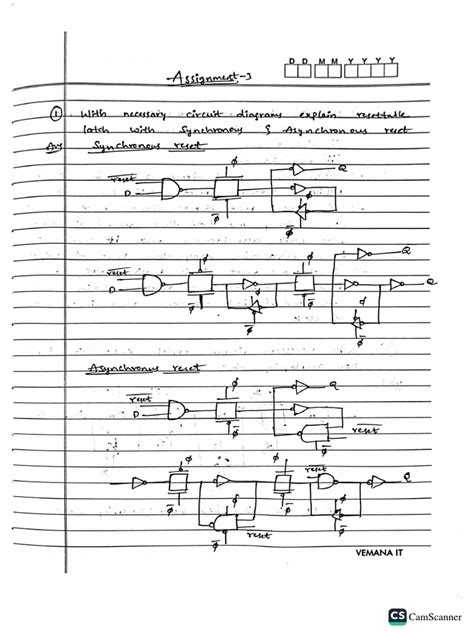 D D M M Y Y Y Y
Assignment-3
① With necessary circuit diagrams explain resettable
latch with Synchronous & Asynchronous reset
Ans Synchronous reset
ϕ
Q
reset
D
ϕ
ϕ
ϕ
Q
reset
ϕ
ϕ
Q
D
ϕ
ϕ
ϕ
ϕ
Asynchronous reset
ϕ
Q
reset
D
ϕ
reset
ϕ
ϕ
reset
Q
ϕ
ϕ
ϕ
ϕ
reset
ϕ
VEMANA IT
CS CamScanner